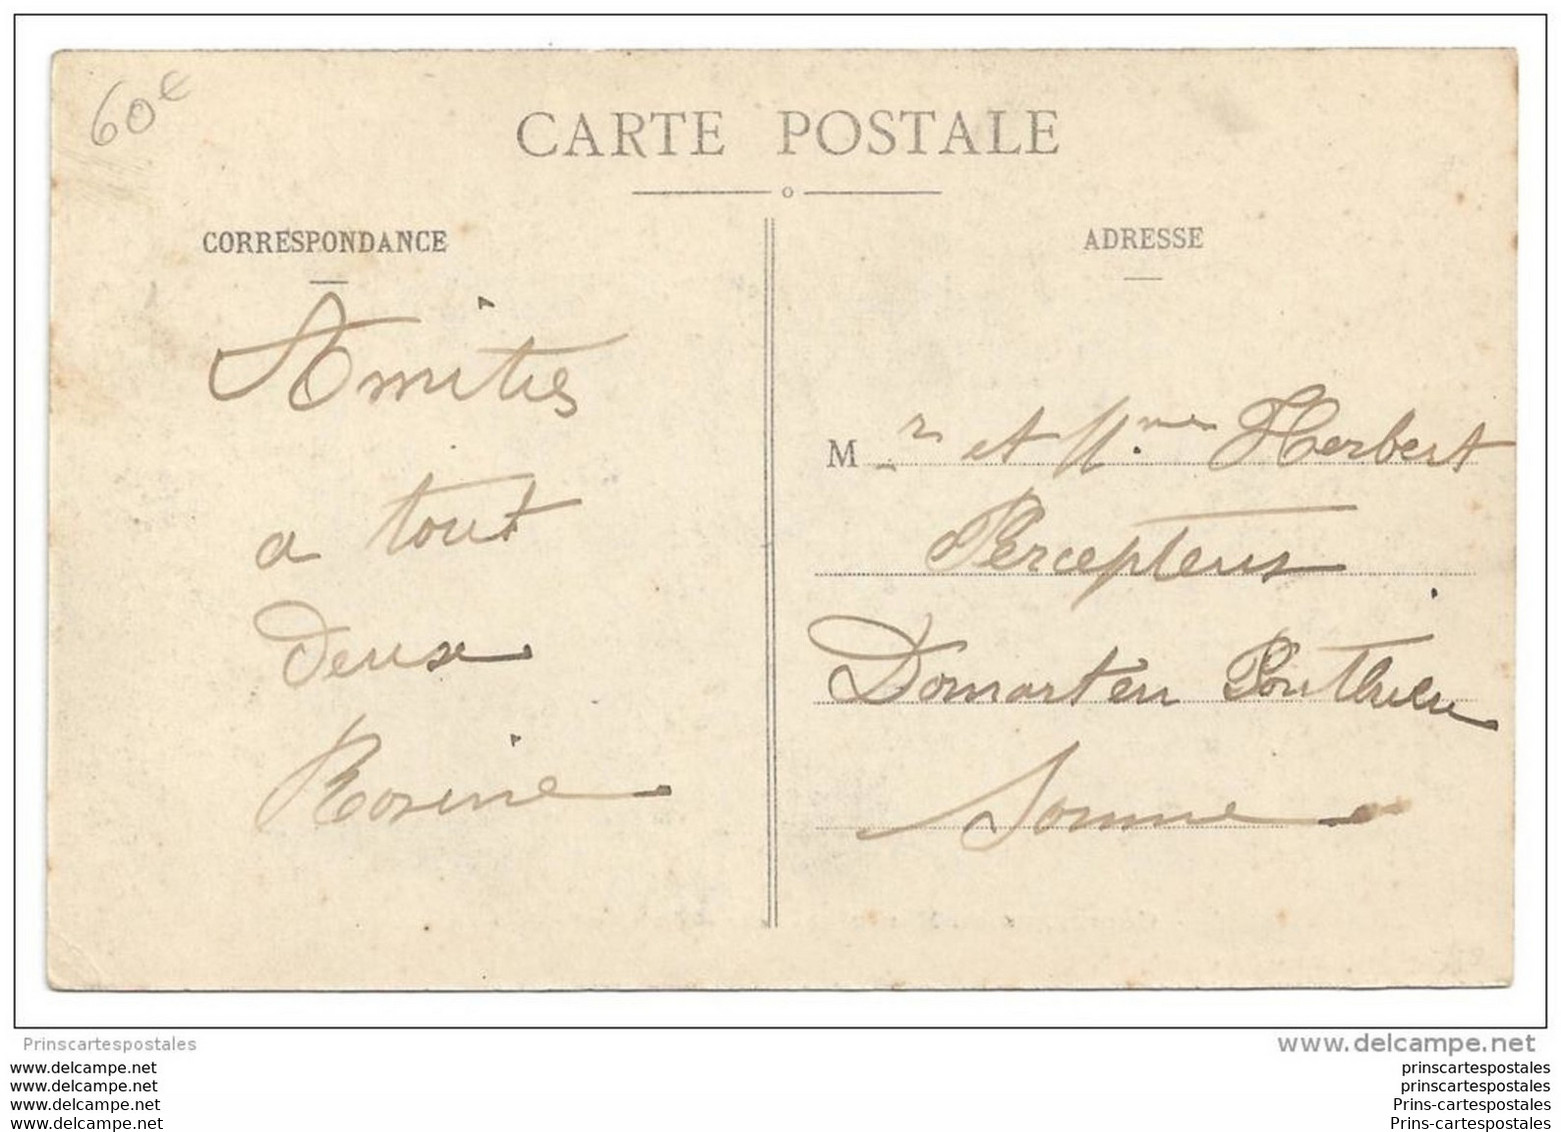 60€
CARTE POSTALE
CORRESPONDANCE
Amities
a tout
Deux
Rosine
ADRESSE
M r et Mme Herbert
Percepteurs
Domart en Ponthieu
Somme
Prinscartespostales
www.delcampe.net
www.delcampe.net
www.delcampe.net
www.delcampe.net
www.delcampe.net
prinscartespostales
prinscartespostales
Prins-cartespostales
Prins-cartespostales